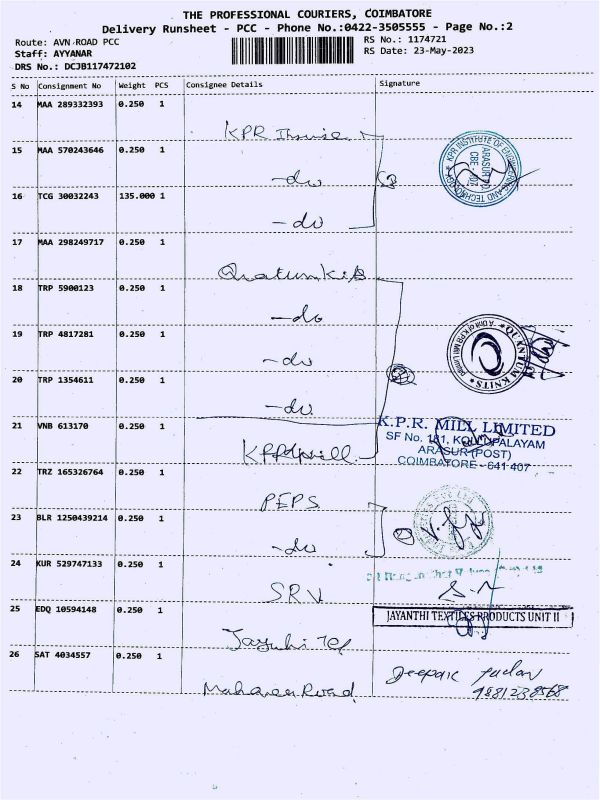 THE PROFESSIONAL COURIERS, COIMBATORE
Delivery Runsheet - PCC - Phone No.:0422-3505555 - Page No.:2
Route: AVN ROAD PCC
RS No.: 1174721
Staff: AYYANAR
RS Date: 23-May-2023
DRS No.: DCJB117472102
S No Consignment No Weight PCS Consignee Details Signature
14 MAA 289332393 0.250 1
KPR
15 MAA 570243646 0.250 1
-do
16 TCG 30032243 135.000 1
-do
KPR INSTITUTE OF ENGINEERING AND TECHNOLOGY
17 MAA 298249717 0.250 1
18 TRP 5900123 0.250 1
-do
19 TRP 4817281 0.250 1
-do
20 TRP 1354611 0.250 1
-do
QUANTUM KNITS
21 VNB 613170 0.250 1
K.P.R. MILL LIMITED
SF No. 181, KOLLUPALAYAM
ARASUR (POST)
COIMBATORE - 641 407
22 TRZ 165326764 0.250 1
PEPS
23 BLR 1250439214 0.250 1
-do
24 KUR 529747133 0.250 1
SRV
25 EDQ 10594148 0.250 1
JAYANTHI TEXTILES PRODUCTS UNIT II
26 SAT 4034557 0.250 1
Deepak